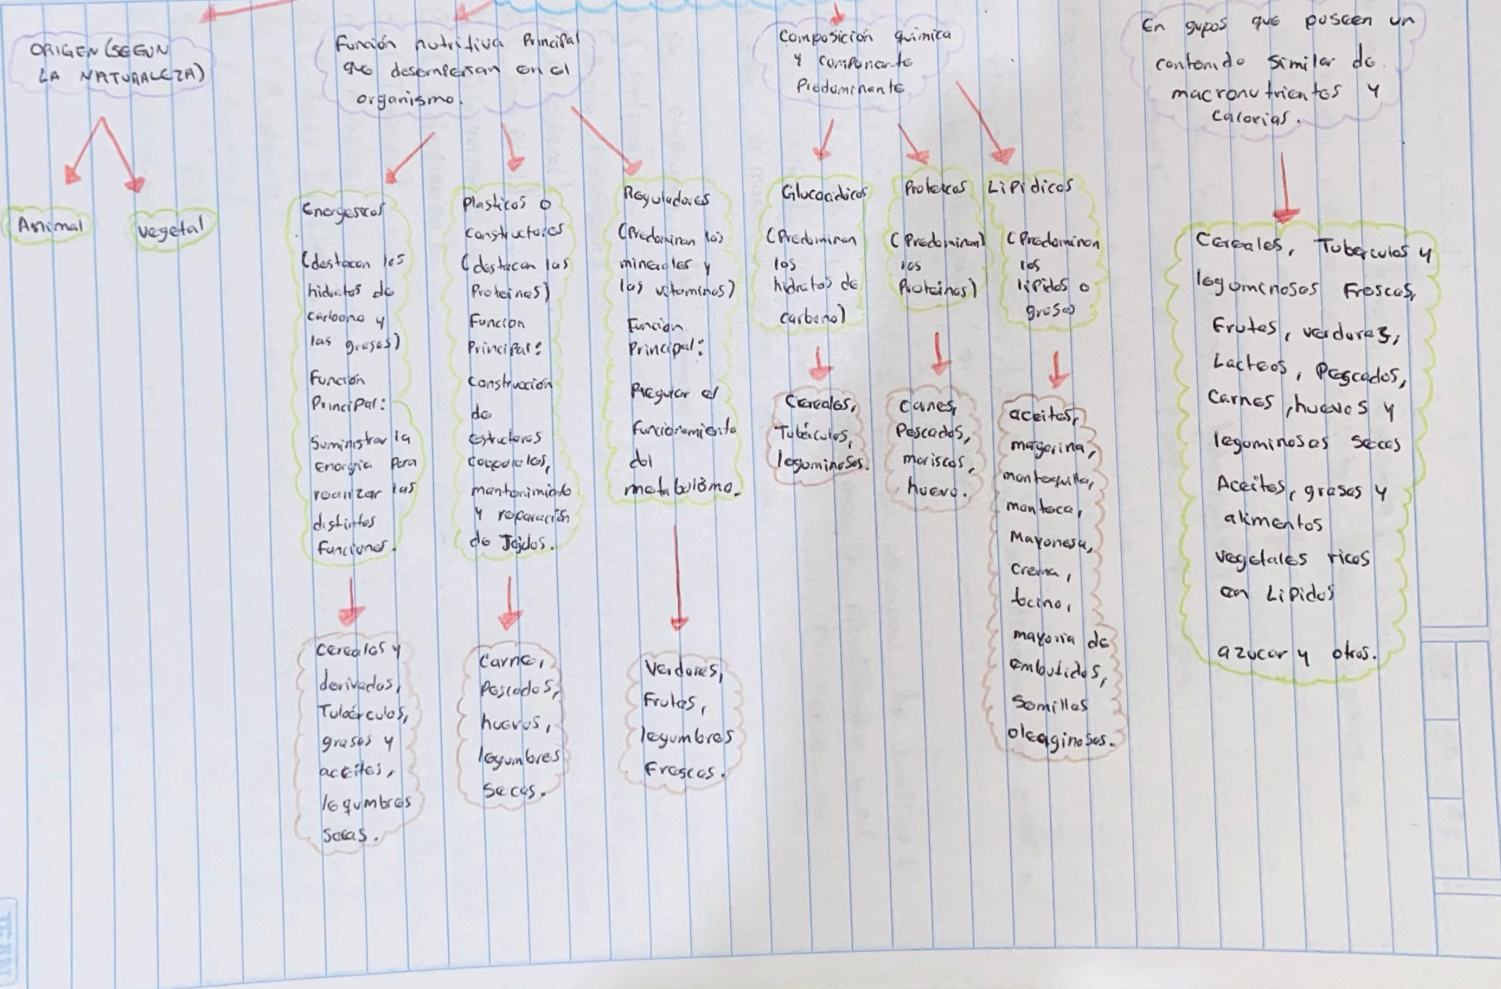 ORIGEN (SEGUN
LA NATURALEZA)
Animal
vegetal
Función nutritiva Principal
que desempeñan en el
organismo.
Energeticos
(destacan los
hidratos de
carbono y
las grasas)
Función
Principal:
Suministrar la
energia para
realizar las
distintas
funciones.
Cereales y
derivados,
Tubérculos,
grasas y
aceites,
legumbres
secas.
Plasticos o
constructores
(destacan las
Proteinas)
Funcion
Principal:
construcción
de
estructuras
corporales,
mantenimiento
y reparación
de Tejidos.
Carne,
Pescados,
huevos,
legumbres
secas.
Reguladores
(Predominan los
minerales y
las vitaminas)
Funcion
Principal:
Regular el
Funcionamiento
del
metabolismo.
Verduras,
Frutas,
legumbres
Frescas.
Composición química
y componente
Predominante
Glucocidicos
(Predominan
los
hidratos de
carbono)
Cereales,
Tubérculos,
leguminosos.
Proteicos
(Predominan)
las
Proteinas)
Canes,
Pescados,
mariscos,
huevo.
Lipidicos
(Predominan
los
lipidos o
grasas
aceites,
margarina,
mantequilla,
manteca,
Mayonesa,
Crema,
tocino,
mayoria de
embutidos,
Semillas
oleaginosas.
En gupos que poseen un
contenido similar de
macronutrientes y
Calorias.
Cereales, Tubérculos y
leguminosas Frescas,
Frutas, verduras,
Lacteos, Pescados,
Carnes, huevos y
leguminosas secas
Aceites, grasas y
alimentos
vegetales ricos
en Lipidos
azucar y otros.